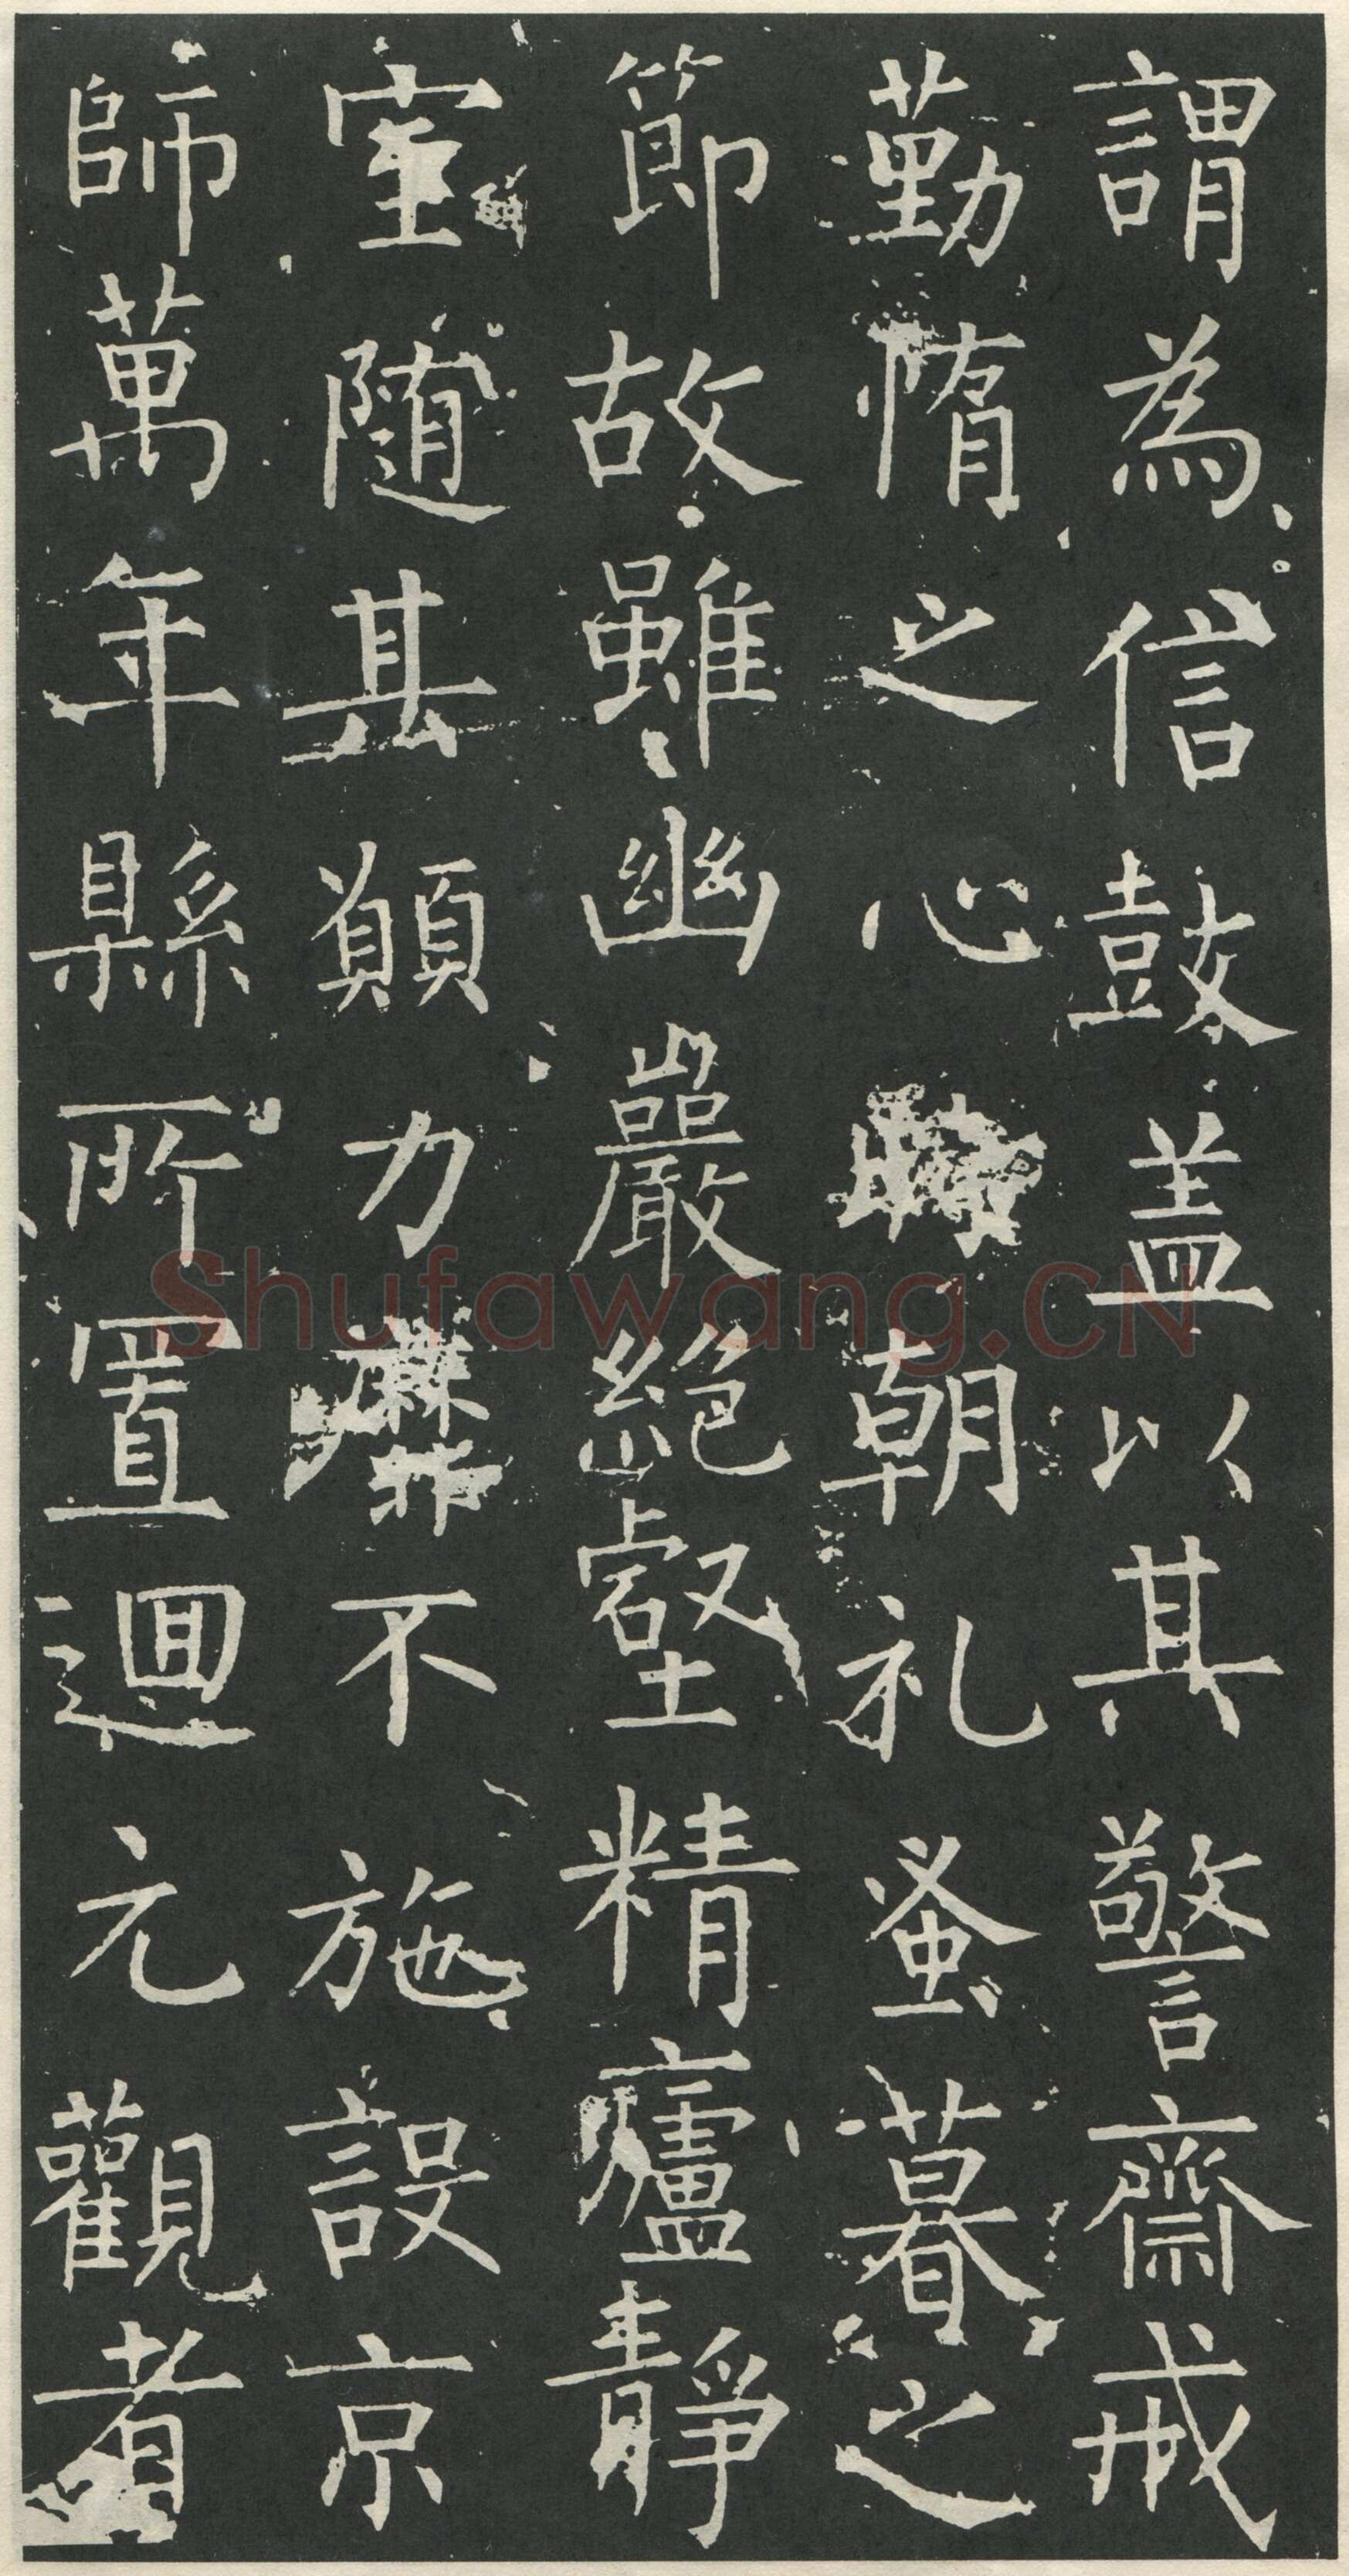 謂為信鼓盖以其警齋戒
勤惰之心時朝礼蚤暮之
節故雖幽巖絕壑精廬靜
室随其願力靡不施設京
師萬年縣所置迴元觀者
Shufawang.CN